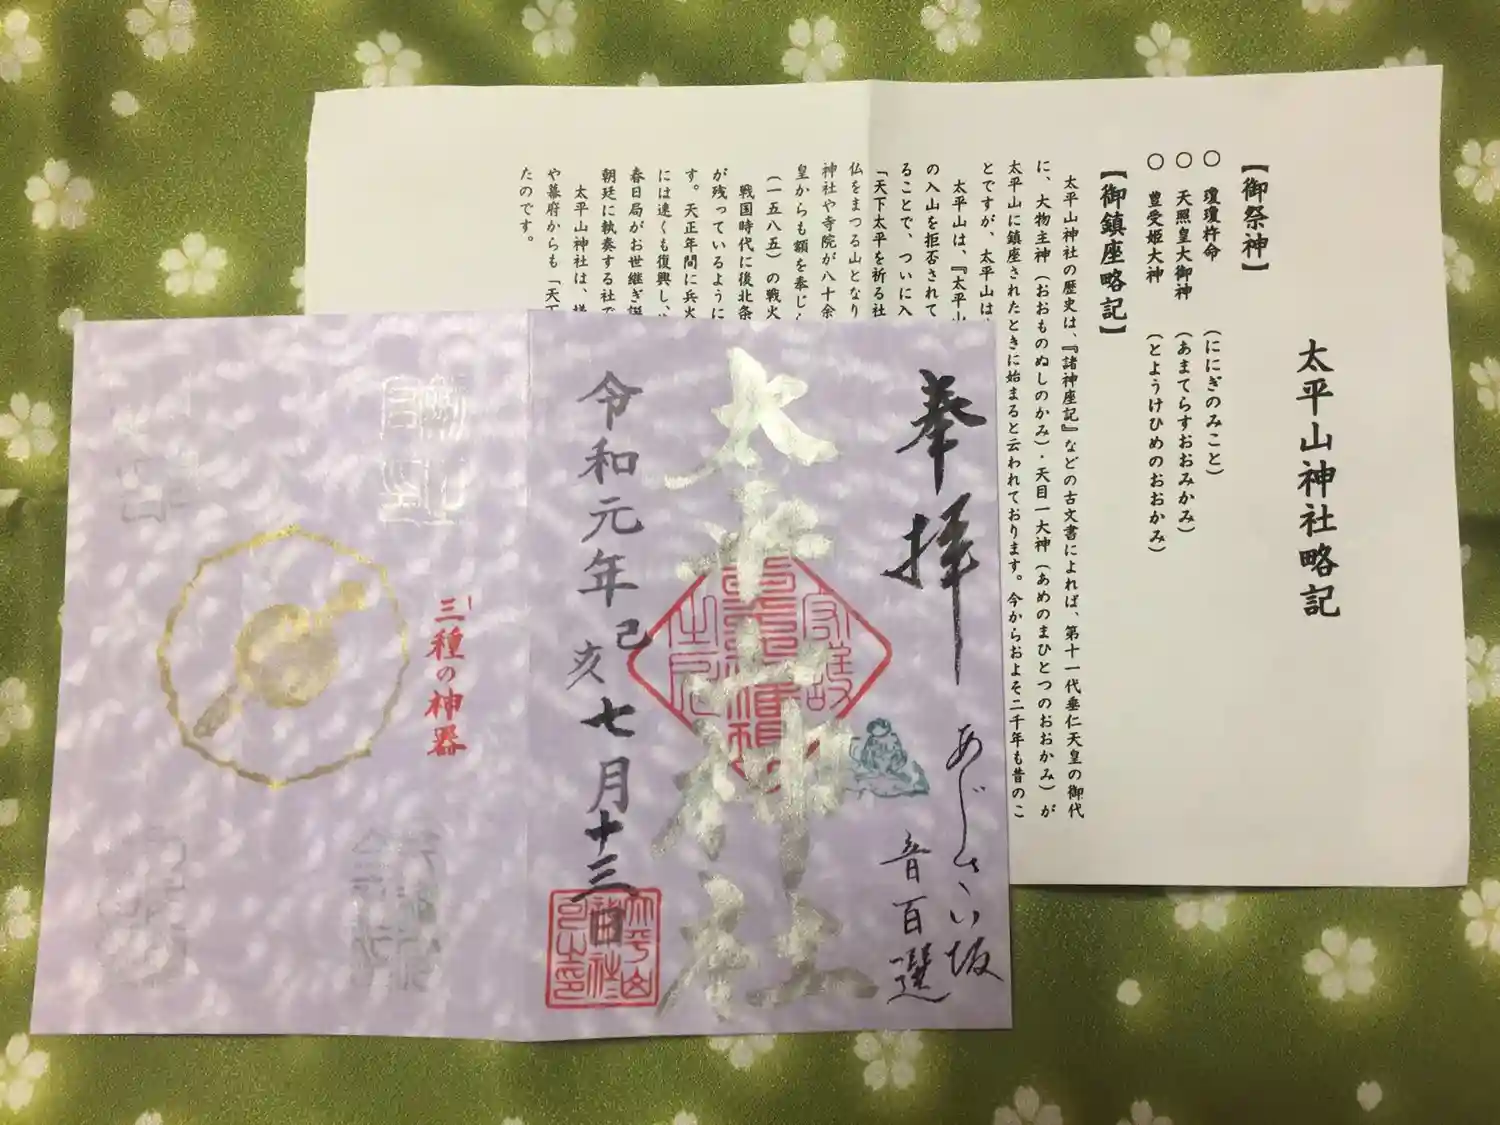 太平山神社略記
【御祭神】
○ 瓊瓊杵命 (ににぎのみこと)
○ 天照皇大御神 (あまてらすおおみかみ)
○ 豊受姫大神 (とようけひめのおおかみ)
【御鎮座略記】
太平山神社の歴史は、『諸神座記』などの古文書によれば、第十一代垂仁天皇の御代
に、大物主神(おおものぬしのかみ)・天目一大神(あめのまひとつのおおかみ)が
太平山に鎮座されたときに始まると云われております。今からおよそ二千年も昔のこ
とですが、太平山は
太平山は、『太平山
の入山を拒否されて
ることで、ついに入
「天下太平を祈る社
仏をまつる山となり
神社や寺院が八十余
皇からも額を奉じ
(一五八五)の戦火
戦国時代に後北条
が残っているように
す。天正年間に兵火
には速くも復興し、
春日局がお世継ぎ誕
朝廷に執奏する社で
太平山神社は、様
や幕府からも「天下
たのです。
奉拝
あじさい坂
音百選
太平山神社
令和元年己亥七月十三日
太平山
神社
之印
三種の神器